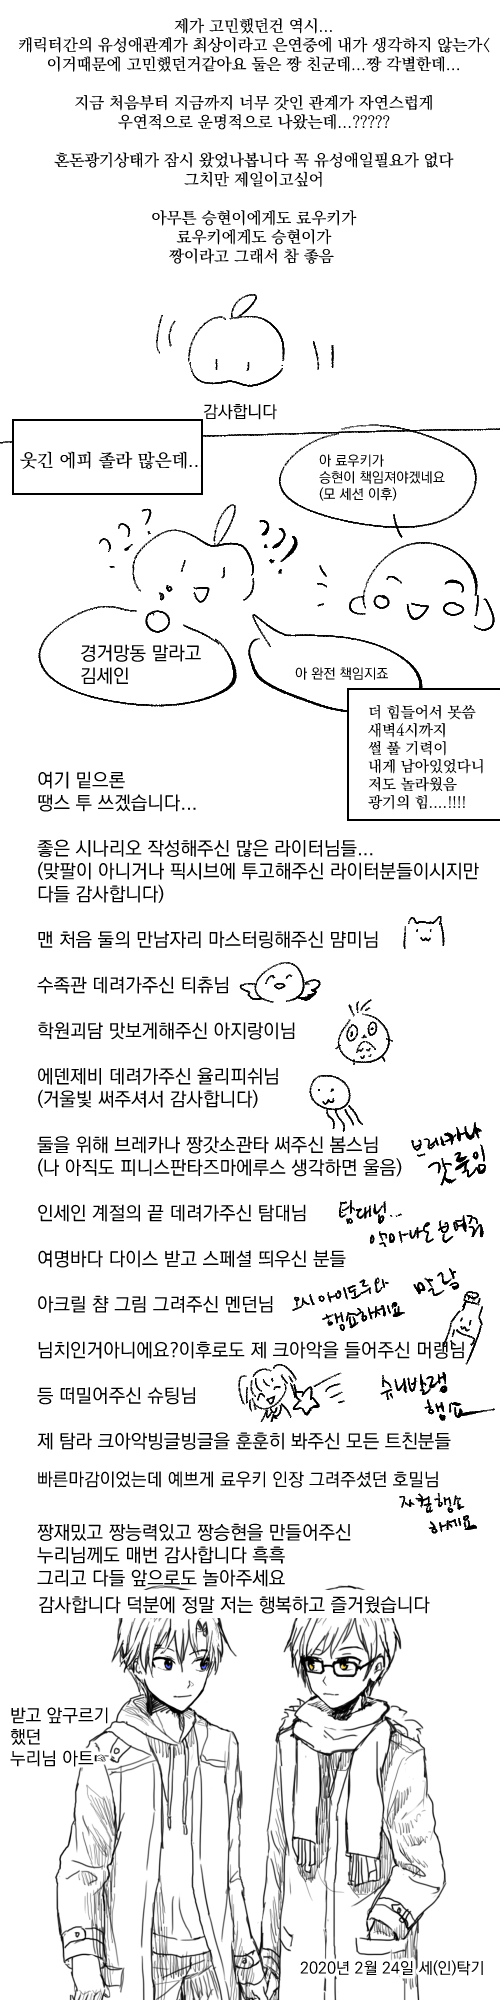 제가 고민했던건 역시...
캐릭터간의 유성애관계가 최상이라고 은연중에 내가 생각하지 않는가<
이거때문에 고민했던거같아요 둘은 짱 친군데...짱 각별한데...
지금 처음부터 지금까지 너무 갓인 관계가 자연스럽게
우연적으로 운명적으로 나왔는데...?????
혼돈광기상태가 잠시 왔었나봅니다 꼭 유성애일필요가 없다
그치만 제일이고싶어
아무튼 승현이에게도 료우키가
료우키에게도 승현이가
짱이라고 그래서 참 좋음
감사합니다
웃긴 에피 졸라 많은데..
아 료우키가
승현이 책임져야겠네요
(모 세션 이후)
???
???
경거망동 말라고
김세인
아 완전 책임지죠
더 힘들어서 못씀
새벽4시까지
썰 풀 기력이
내게 남아있었다니
저도 놀라웠음
광기의 힘....!!!!
여기 밑으론
땡스 투 쓰겠습니다...
좋은 시나리오 작성해주신 많은 라이터님들...
(맞팔이 아니거나 픽시브에 투고해주신 라이터분들이시지만
다들 감사합니다)
맨 처음 둘의 만남자리 마스터링해주신 먐미님
수족관 데려가주신 티츄님
학원괴담 맛보게해주신 아지랑이님
에덴제비 데려가주신 율리피쉬님
(거울빛 써주셔서 감사합니다)
둘을 위해 브레카나 짱갓소관타 써주신 봄스님
(나 아직도 피니스판타즈마에루스 생각하면 울음)
브레카나
갓룰임
인세인 계절의 끝 데려가주신 탐대님
탐대님...
악마나오 보여줘
여명바다 다이스 받고 스페셜 띄우신 분들
아크릴 챰 그림 그려주신 멘던님
오시아이도루와
행쇼하세요
말랑
님치인거아니에요?이후로도 제 크아악을 들어주신 머령님
등 떠밀어주신 슈팅님
슈니발랭
행쇼
제 탐라 크아악빙글빙글을 훈훈히 봐주신 모든 트친분들
빠른마감이었는데 예쁘게 료우키 인장 그려주셨던 호밀님
자컾행쇼
하세요
짱재밌고 짱능력있고 짱승현을 만들어주신
누리님께도 매번 감사합니다 흑흑
그리고 다들 앞으로도 놀아주세요
감사합니다 덕분에 정말 저는 행복하고 즐거웠습니다
받고 앞구르기
했던
누리님 아트
2020년 2월 24일 세(인)탁기